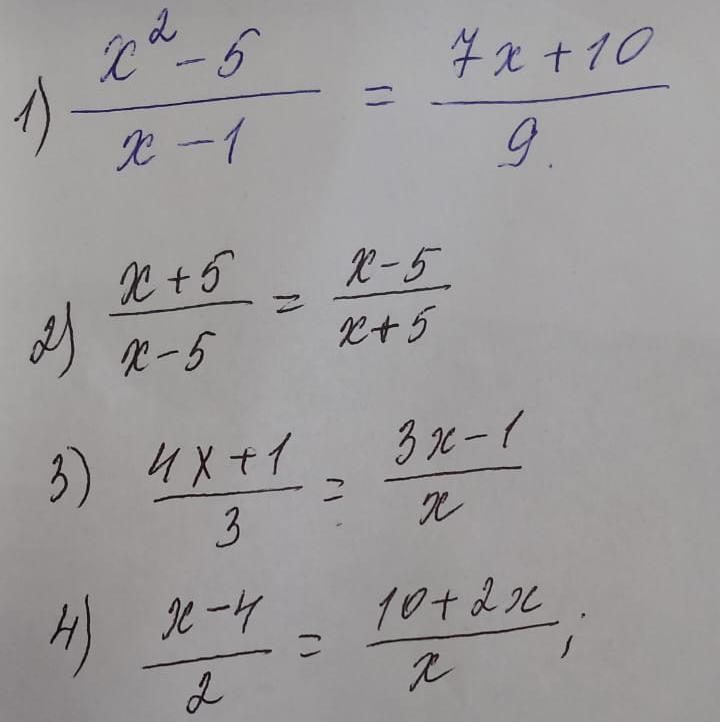 1) \frac{x^2-5}{x-1} = \frac{7x+10}{9}.
2) \frac{x+5}{x-5} = \frac{x-5}{x+5}
3) \frac{4x+1}{3} = \frac{3x-1}{x}
4) \frac{x-4}{2} = \frac{10+2x}{x};